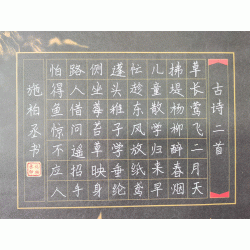 古诗二首
草长莺飞二月天
拂堤杨柳醉春烟
儿童散学归来早
忙趁东风放纸鸢
蓬头稚子学垂纶
侧坐莓苔草映身
路人借问遥招手
怕得鱼惊不应人
施柏丞书